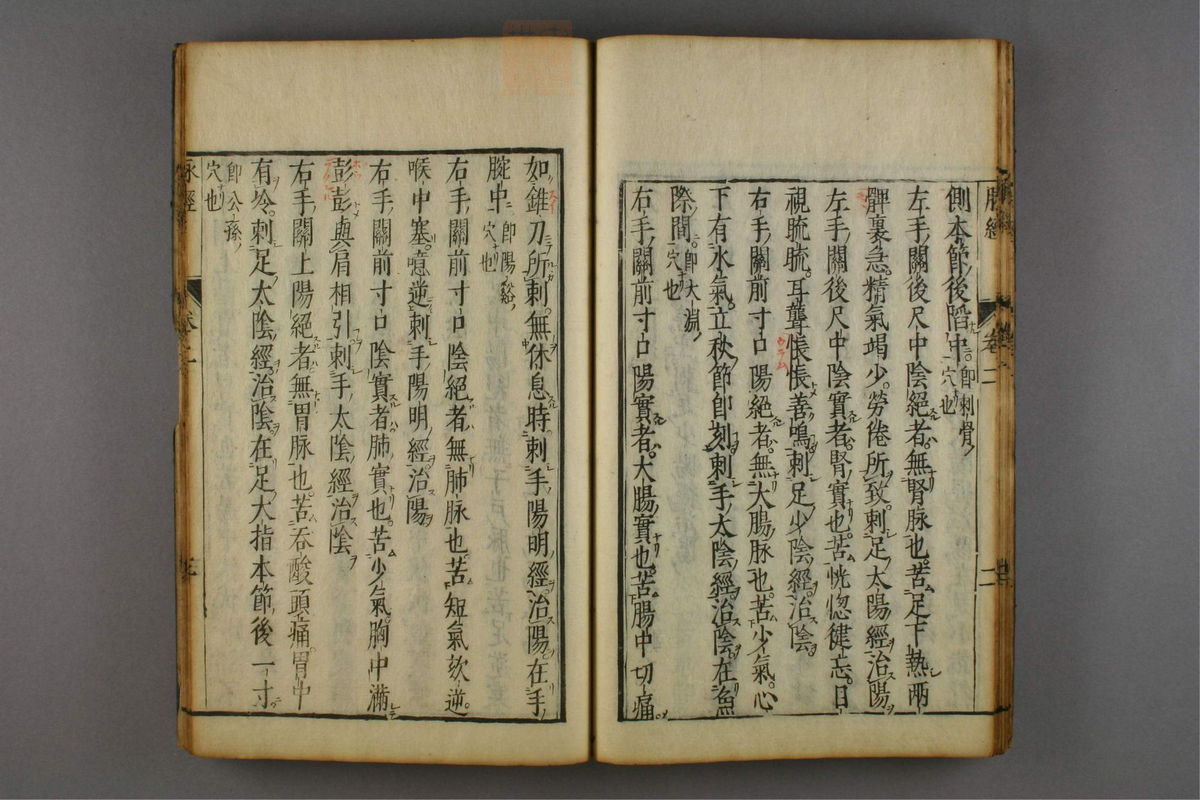 脉經
卷二
二
側本節後陷中即刺骨一穴也
左手關後尺中陰絕者無腎脉也苦足下熱兩
髀裏急精氣竭少勞倦所致刺足太陽經治陽
左手關後尺中陰實者腎實也苦恍惚健忘目
視䀮䀮耳聾悵悵善鳴刺足少陰經治陰
右手關前寸口陽絕者無大腸脉也苦少氣心
下有水氣立秋節即刻刺手太陰經治陰在魚
際間即大淵一穴也
右手關前寸口陽實者大腸實也苦腸中切痛
如錐刀所刺無休息時刺手陽明經治陽在手
腕中即陽谿穴也
右手關前寸口陰絕者無肺脉也苦短氣欬逆
喉中塞噫逆刺手陽明經治陽
右手關前寸口陰實者肺實也苦少氣胸中滿
彭彭與肩相引刺手太陰經治陰
右手關上陽絕者無胃脉也苦吞酸頭痛胃中
有冷刺足太陰經治陰在足大指本節後一寸
即公孫穴也
脉經
卷二